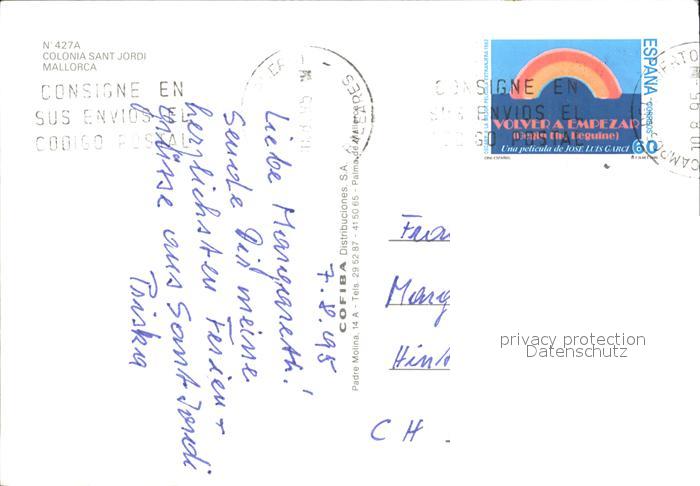 N° 427A
COLONIA SANT JORDI
MALLORCA
CONSIGNE EN
SUS ENVIOS EL
CODIGO POSTAL
7.8.95
Liebe Margareth!
Sende Dir meine
herzlichsten Ferien-
grüsse aus Sant Jordi
COFIBA Distribuciones, S.A.
Padre Molina, 14 A - Tels. 29 52 87 - 41 50 65 - Palma de Mallorca
CONSIGNE EN
ENVIOS EL
GO POSTAL
ESPAÑA
CORREOS
VOLVER A EMPEZAR
(Begin the Beguine)
Una película de JOSE LUIS GARCI
60
CINE ESPAÑOL
Frau
Marg
Hint
CH
privacy protection
Datenschutz